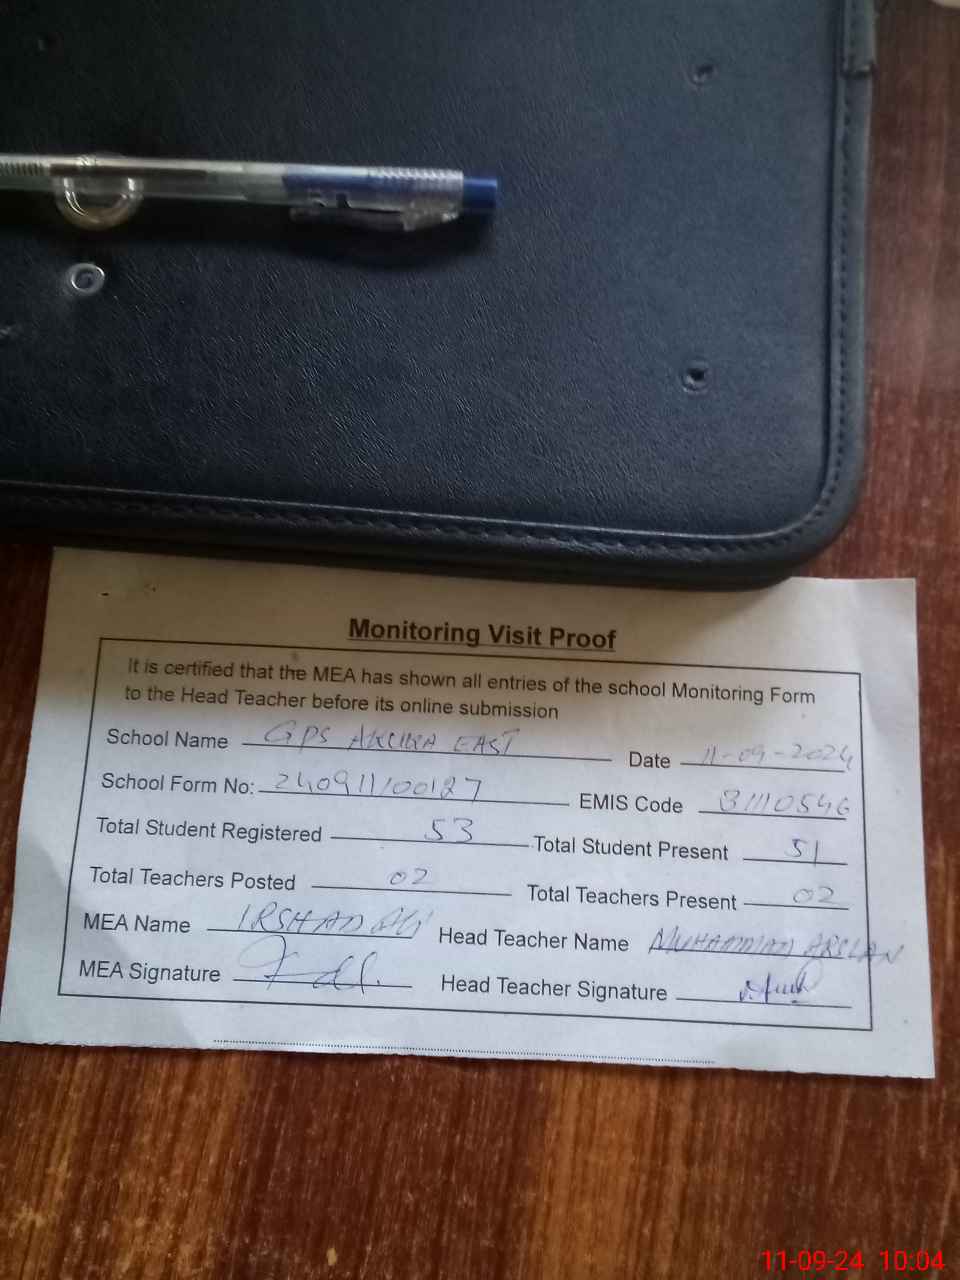 Monitoring Visit Proof
It is certified that the MEA has shown all entries of the school Monitoring Form
to the Head Teacher before its online submission
School Name GPS AKUKA EAST Date 11-09-2024
School Form No: 240911100127 EMIS Code 31110546
Total Student Registered 53 Total Student Present 51
Total Teachers Posted 02 Total Teachers Present 02
MEA Name IRSHAD Ali Head Teacher Name MUHAMMAD ARSLAN
MEA Signature Head Teacher Signature
11-09-24 10:04